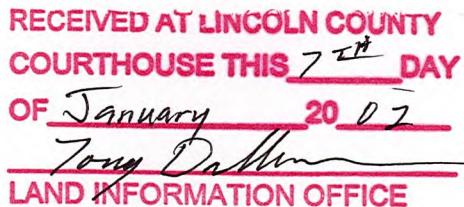 RECEIVED AT LINCOLN COUNTY
COURTHOUSE THIS 7TH DAY
OF January 20 02
Tony
LAND INFORMATION OFFICE